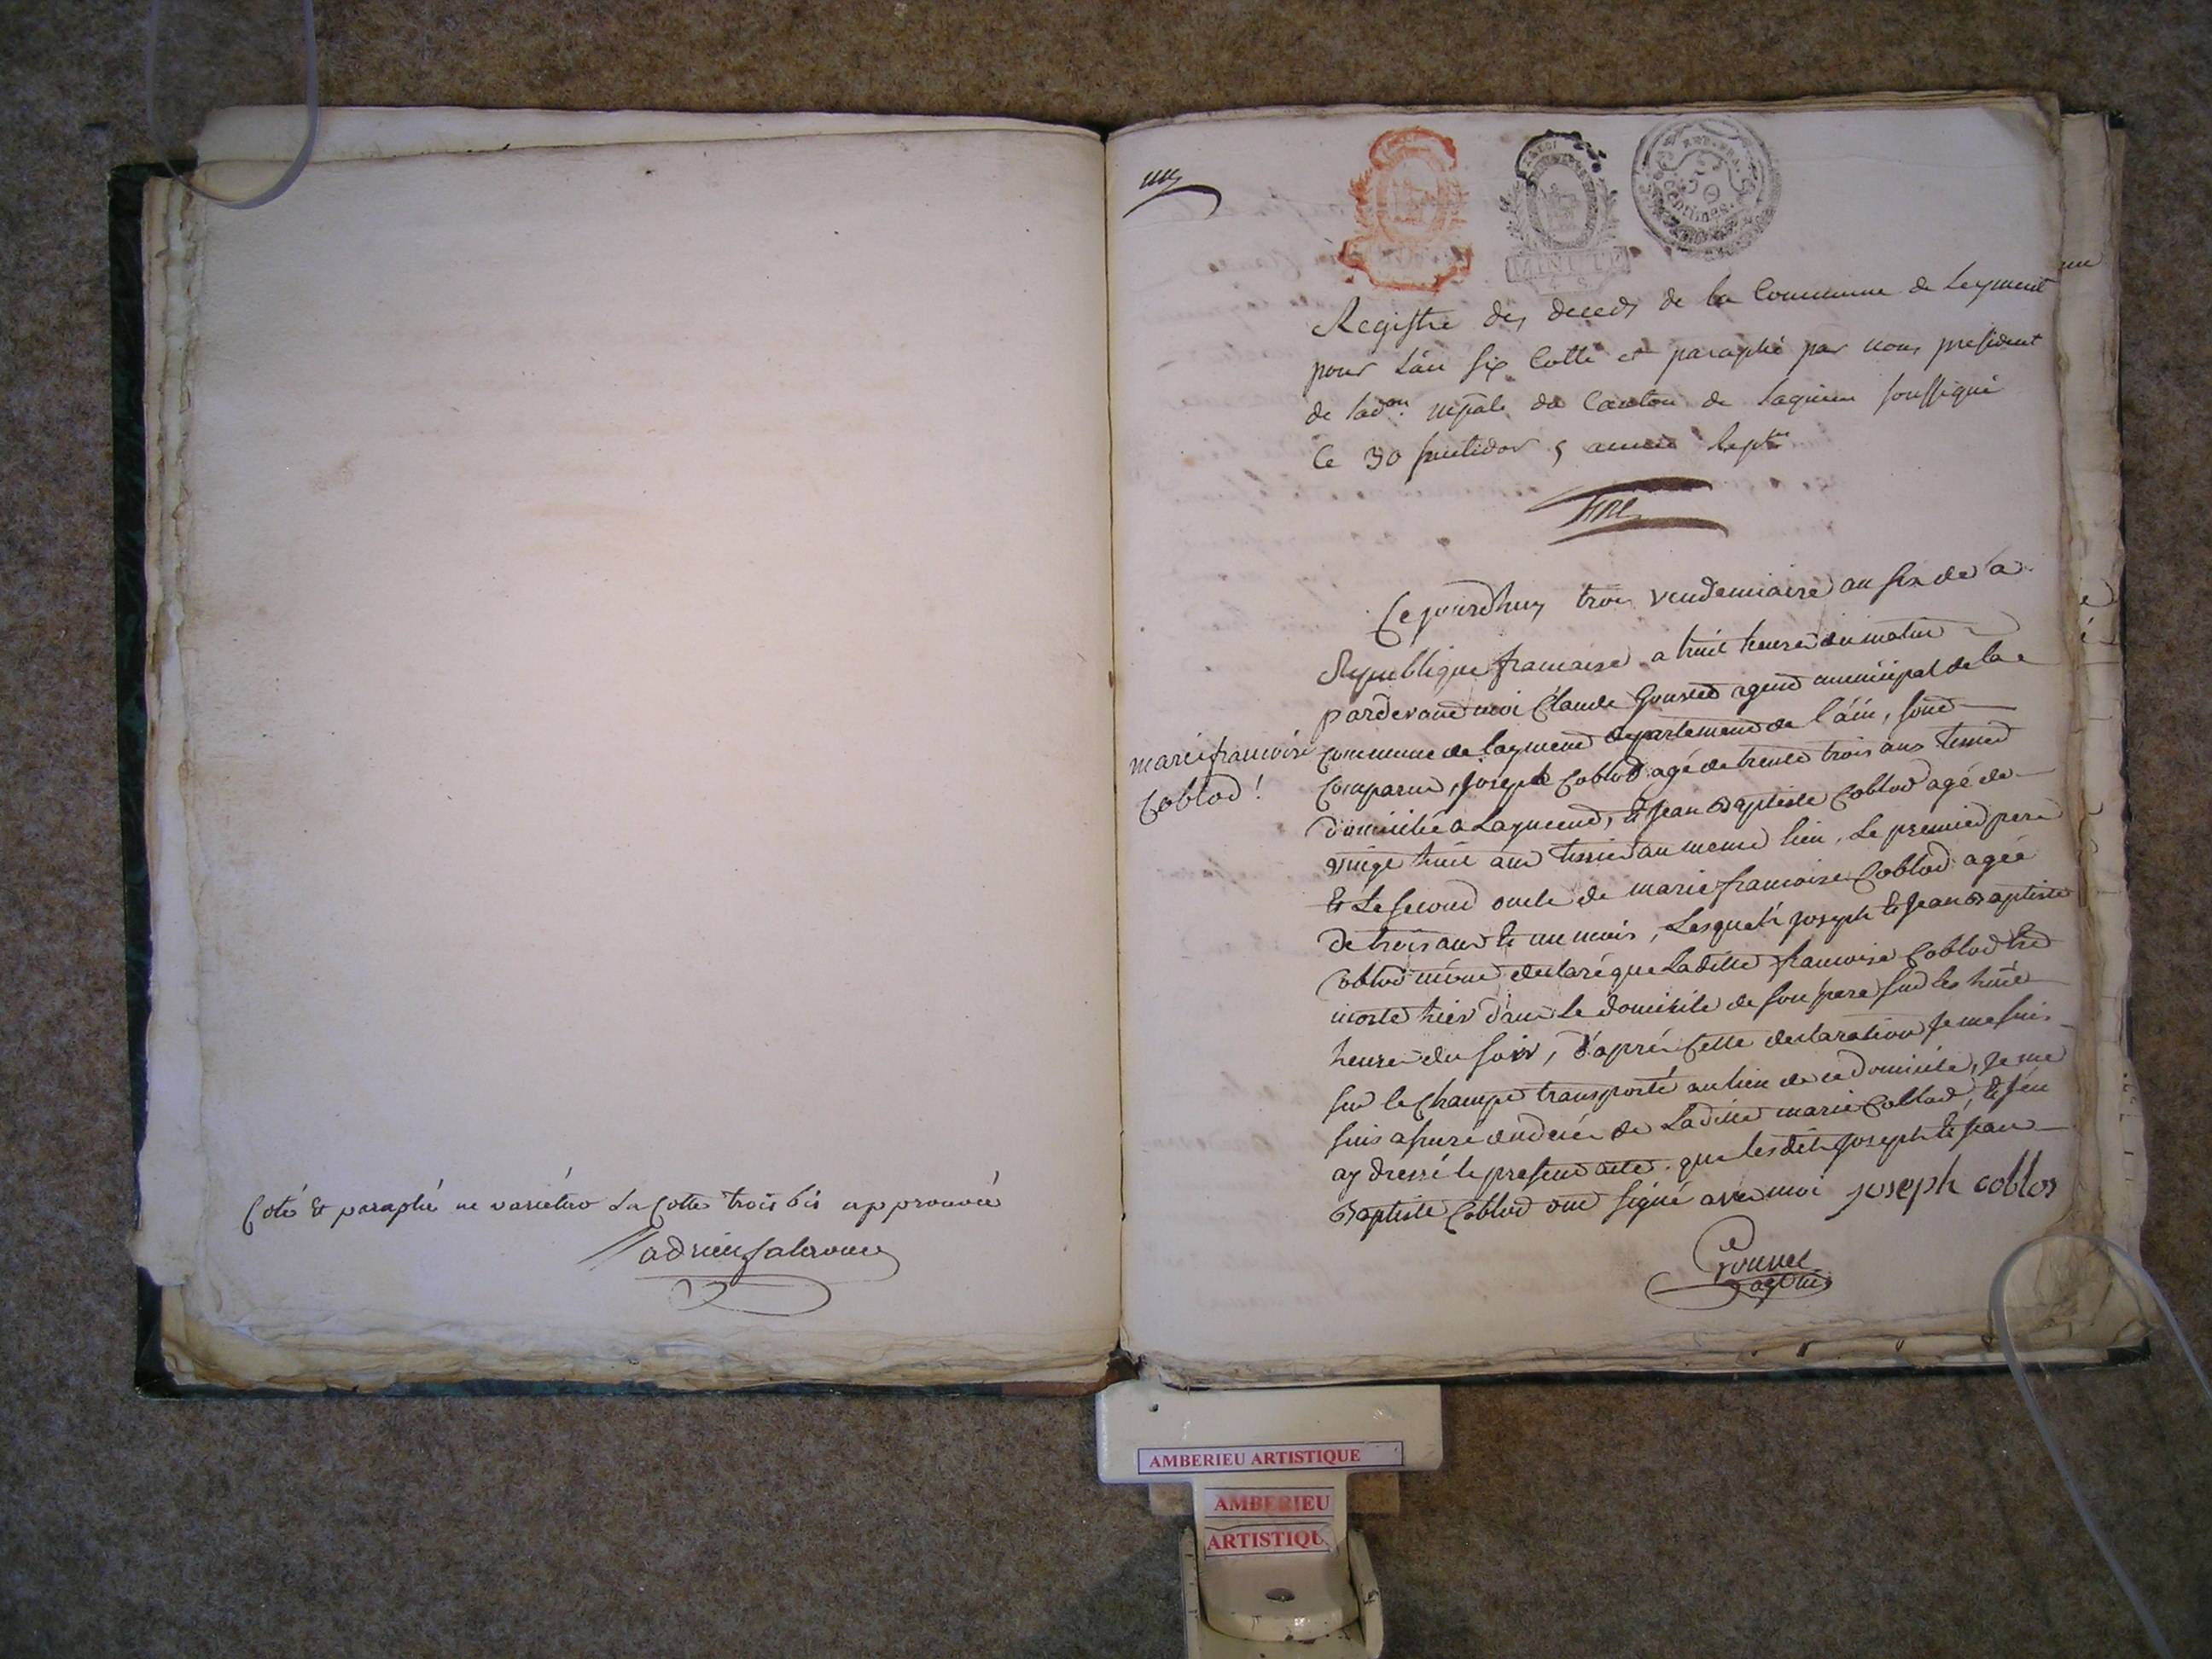 Coté et paraphé ne varietur La Cotte trois bis approuvée
REP. FRA.
50
centimes
Registre des deceds de la Commune de Leyment
pour L'an six Cotté et paraphé par nous president
de l'adon. mpale du Canton de Lagnieu soussigné
Ce 30 fructidor 5 année
Cejourdhuy trois vendemiaire an six de la
Republique francaise a huit heures du matin
pardevant moi Claude agent municipal de la
commune de Layment departement de l'ain, sont
comparus, joseph Coblod agé de trente trois ans
domicilié a Layment, et jean Baptiste Coblod agé de
vingt huit ans au meme lieu, Le premier pere
et Le second oncle de marie francoise Coblod agée
de trois ans et un mois, Lesquels joseph et jean Baptiste
Coblod mont declaré que Laditte francoise Coblod est
morte hier dans le domicile de son pere sur les huit
heures du soir, d'aprés cette declaration je me suis
sur le champt transporté au lieu de ce domicile, je me
suis assuré du decés de Laditte marie Coblod, et j'en
ay dressé le present acte. que lesdits joseph et jean
Baptiste Coblod ont signé avec moi joseph coblod
marie francoise
Coblod!
AMBERIEU ARTISTIQUE
AMBERIEU
ARTISTIQU